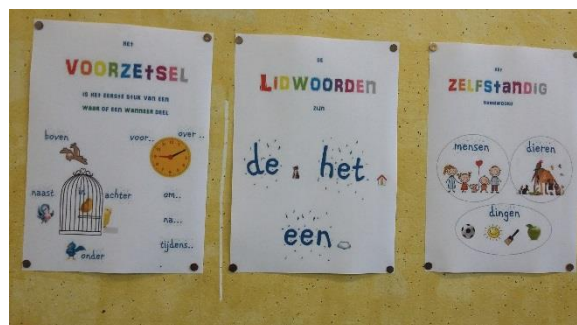 HET
VOORZETSEL
IS HET EERSTE STUK VAN EEN
WAAR OF EEN WANNEER DEEL
boven
voor..
over..
naast
in
achter
om..
na...
onder
tijdens..
DE
LIDWOORDEN
ZIJN
de
het
een
HET
ZELFSTANDIG
NAAMWOORD
mensen
dieren
dingen